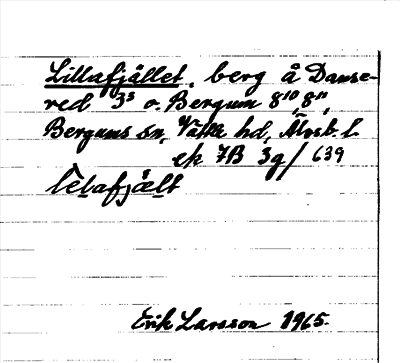 Lillafjället, berg å Danse-
red 3³ o. Bergum 8¹⁰, 8¹¹,
Bergums sn, Vätte hd, Älvsb. l.
ek 7B 3g/639
lelafjælt
Erik Larsson 1965.